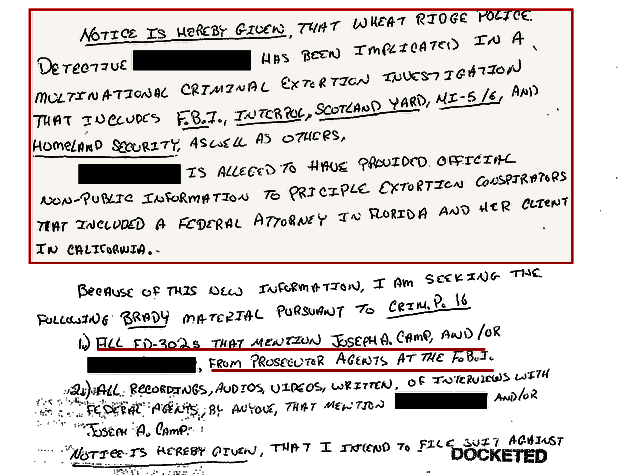 NOTICE IS HEREBY GIVEN, THAT WHEAT RIDGE POLICE
DETECTIVE HAS BEEN IMPLICATED IN A
MULTINATIONAL CRIMINAL EXTORTION INVESTIGATION
THAT INCLUDES F.B.I., INTERPOL, SCOTLAND YARD, MI-5/6, AND
HOMELAND SECURITY, ASWELL AS OTHERS,
IS ALLEGED TO HAVE PROVIDED OFFICIAL
NON-PUBLIC INFORMATION TO PRICIPLE EXTORTION CONSPIRATORS
THAT INCLUDED A FEDERAL ATTORNEY IN FLORIDA AND HER CLIENT
IN CALIFORNIA.
BECAUSE OF THIS NEW INFORMATION, I AM SEEKING THE
FOLLOWING BRADY MATERIAL PURSUANT TO CRIM. P. 16
1.) ALL FD-302s THAT MENTION JOSEPH A. CAMP, AND/OR
, FROM PROSECUTOR AGENTS AT THE F.B.I.
2.) ALL RECORDINGS, AUDIOS, VIDEOS, WRITTEN, OF INTERVIEWS WITH
FEDERAL AGENTS, BY ANYONE, THAT MENTION AND/OR
JOSEPH A. CAMP.
NOTICE IS HEREBY GIVEN, THAT I INTEND TO FILE SUIT AGAINST
DOCKETED